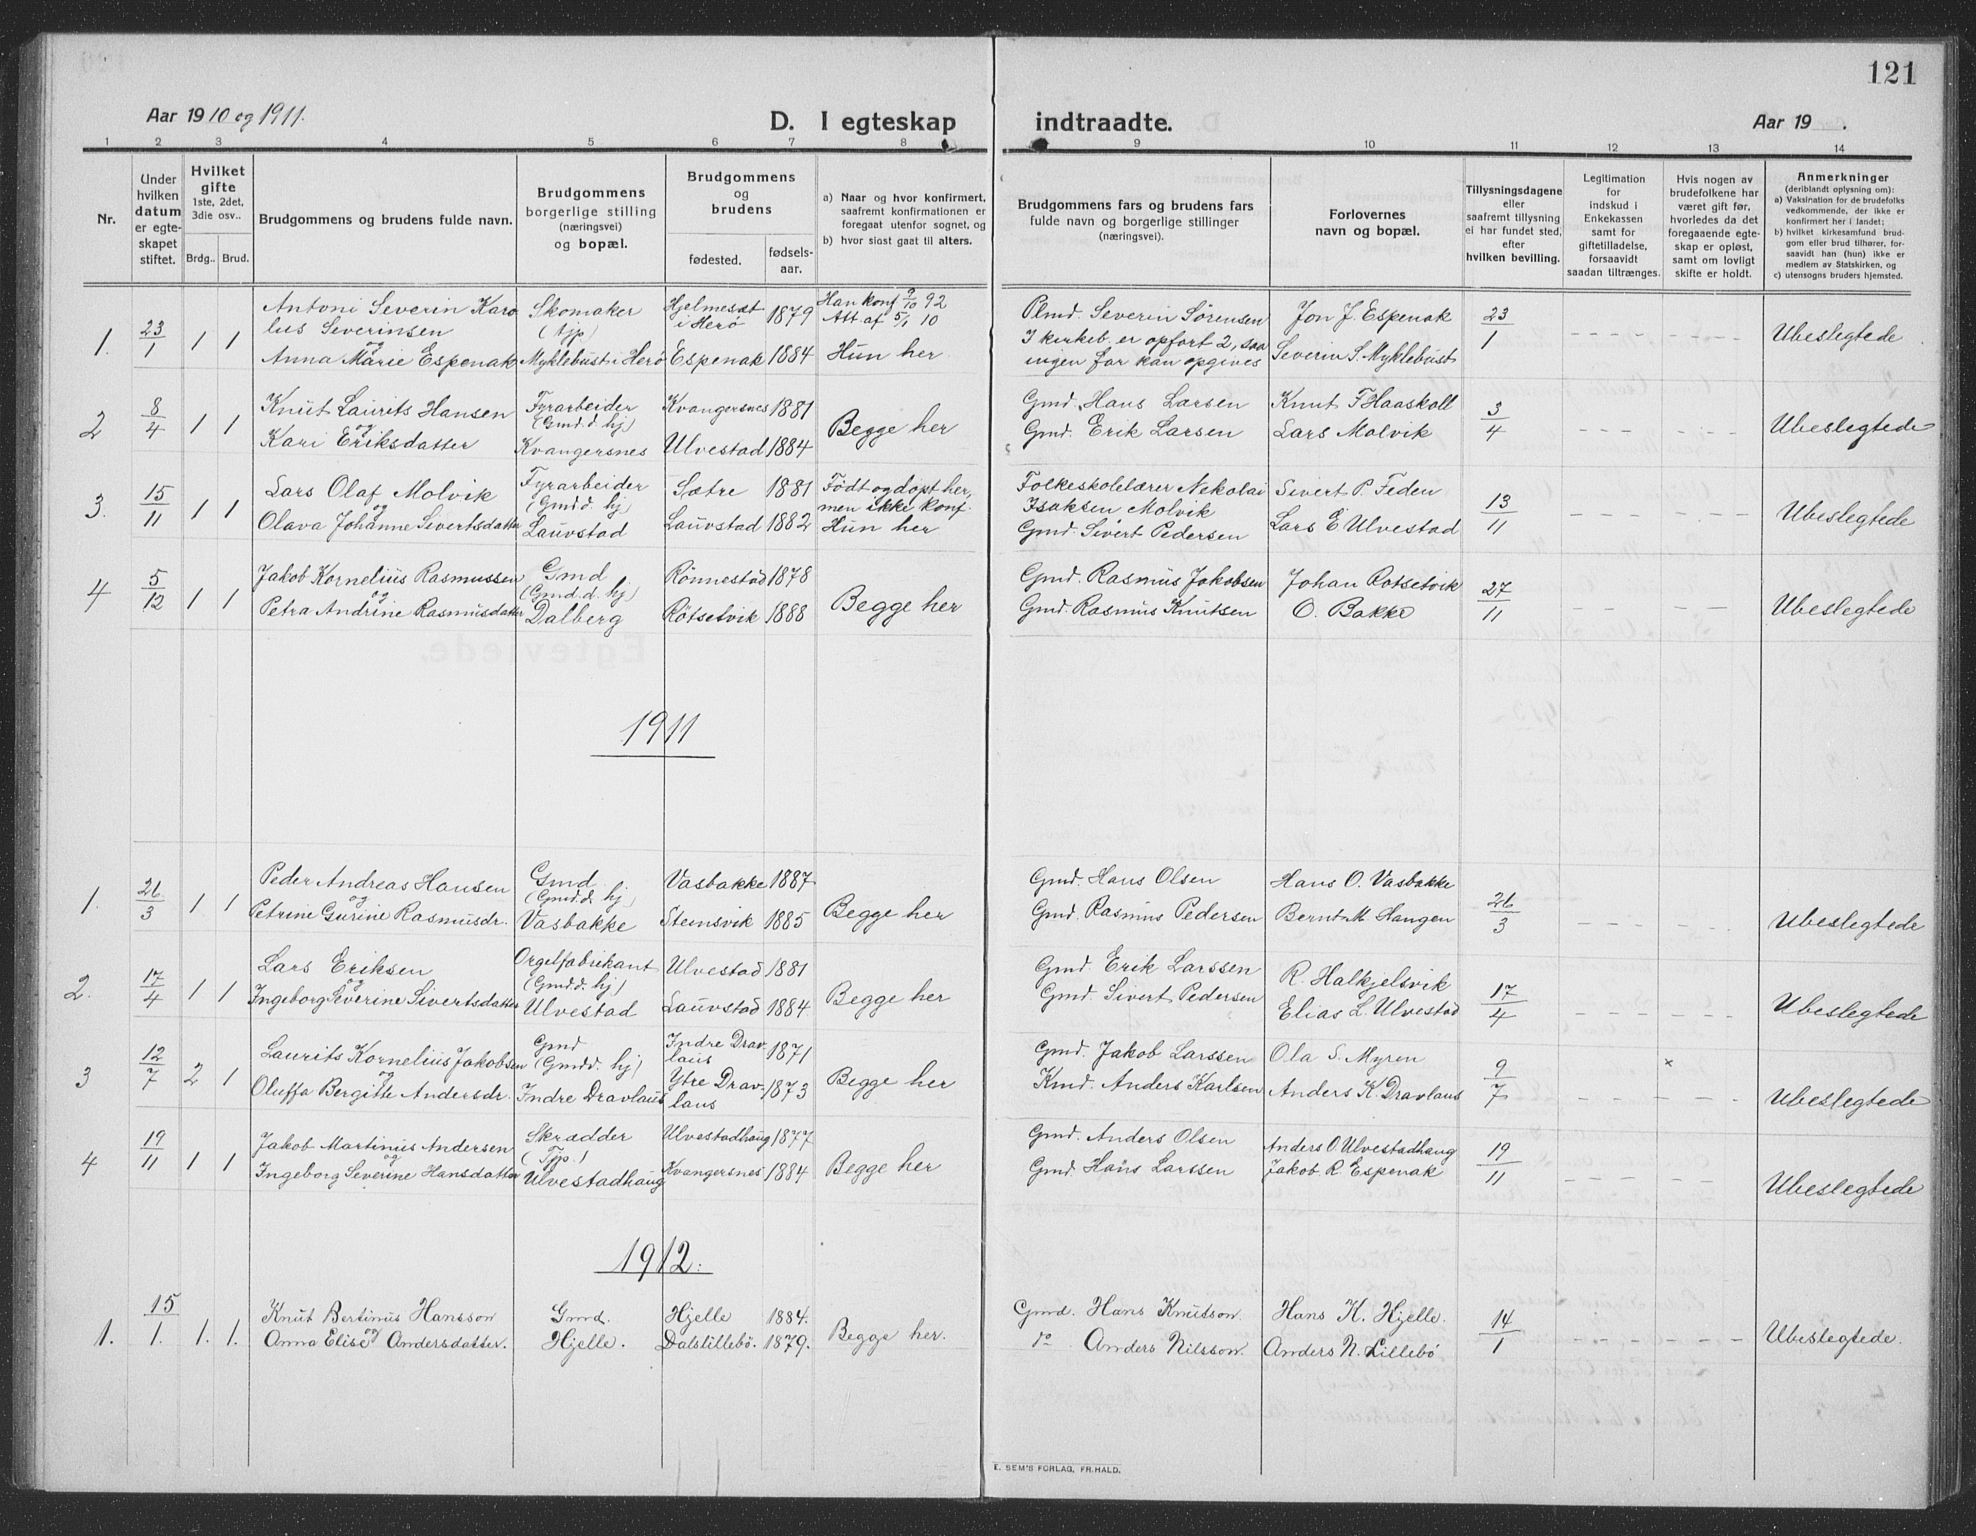 121
Aar 1910 og 1911.
D. I egteskap indtraadte.
Aar 19 .
1 2 3 4 5 6 7 8 9 10 11 12 13 14
Nr.
Under hvilken datum er egteskapet stiftet.
Hvilket gifte 1ste, 2det, 3die osv..
Brdg.. Brud.
Brudgommens og brudens fulde navn.
Brudgommens borgerlige stilling (næringsvei) og bopæl.
Brudgommens og brudens
fødested.
fødsels-aar.
a) Naar og hvor konfirmert, saafremt konfirmationen er foregaat utenfor sognet, og
b) hvor sisst gaat til alters.
Brudgommens fars og brudens fars fulde navn og borgerlige stillinger (næringsvei).
Forlovernes navn og bopæl.
Tillysningsdagene eller saafremt tillysning ei har fundet sted, efter hvilken bevilling.
Legitimation for indskud i Enkekassen samt for giftetilladelse, forsaavidt saadan tiltrænges.
Hvis nogen av brudefolkene har været gift før, hvorledes da det foregaaende egteskap er opløst, samt om lovligt skifte er holdt.
Anmerkninger (deriblandt oplysning om): a) Vaksination for de brudefolks vedkommende, der ikke er konfirmert her i landet; b) hvilket kirkesamfund brudgom eller brud tilhører, forsaavidt han (hun) ikke er medlem av Statskirken, og c) utensogns bruders hjemsted.
1. 23/1 1 1 Antoni Severin Karolus Severinsen Skomaker Hjelmesæt i Herö 1879 Han konf 9/10 92 Att af 5/1 10 Plmd. Severin Sørensen Jon J. Espenak 23/1 Ubeslegtede
og Anna Marie Espenak Myklebust i Herö Espenak 1884 Hun her I kirkeb. er opført 2, saa ingen far kan opgives Severin S. Myklebust
2 8/4 1 1 Knut Laurits Hansen Fyrarbeider (Gmd.d. hj) Kvangersnes 1881 Begge her Gmd. Hans Larsen Knut T Haaskoll 3/4 Ubeslegtede
og Kari Eriksdatter Kvangersnes Ulvestad 1884 Gmd. Erik Larsen Lars Molvik
3. 15/11 1 1 Lars Olaf Molvik Fyrarbeider (Gmd.d. hj) Sætre 1881 Født og døpt her, men ikke konf. Folkeskolelærer Nekolai Isaksen Molvik Sivert P. Feden 13/11 Ubeslegtede
og Olava Johanne Sivertsdatter Lauvstad Lauvstad 1882 Hun her Gmd. Sivert Pedersen Lars E Ulvestad
4 5/12 1 1 Jakob Kornelius Rasmussen Gmd (Gmd.d. hj) Rönnestad 1878 Begge her Gmd. Rasmus Jakobsen Johan Rotsetvik 27/11 Ubeslegtede
og Petra Andrine Rasmusdatter Dalberg Rötsetvik 1888 Gmd. Rasmus Knutsen O. Bakke
1911
1. 26/3 1 1 Peder Andreas Hansen Gmd. (Gmd.d. hj) Vasbakke 1887 Begge her Gmd. Hans Olsen Hans O. Vasbakke 26/3 Ubeslegtede
og Petrine Gurine Rasmusdr. Vasbakke Steinsvik 1885 Gmd. Rasmus Pedersen Bernt M. Haugen
2. 17/4 1 1 Lars Eriksen Orgelfabrikant (Gmd.d. hj) Ulvestad 1881 Begge her Gmd. Erik Larssen R. Halkjelsvik 17/4 Ubeslegtede
og Ingeborg Severine Sivertsdatter Ulvestad Lauvstad 1884 Gmd. Sivert Pedersen Elias L. Ulvestad
3 12/7 2 1 Laurits Kornelius Jakobsen Gmd (Gmd.d. hj) Indre Dravlaus 1871 Begge her Gmd. Jakob Larssen Ola S. Myren 9/7 × Ubeslegtede
og Oluffa Bergitte Andersdr. Indre Dravlaus Ytre Dravlaus 1873 Kmd. Anders Karlsen Anders K. Dravlaus
4 19/11 1 1 Jakob Martinus Andersen Skrædder Ulvestadhaug 1877 Begge her Gmd. Anders Olsen Anders O Ulvestadhaug 19/11 Ubeslegtede
og Ingeborg Severine Hansdatter Ulvestadhaug Kvangersnes 1884 Gmd Hans Larssen Jakob R. Espenak
1912.
1. 15/1. 1. 1. Knut Bertinus Hansson Gmd. Hjelle 1884. Begge her. Gmd. Hans Knutson. Hans K. Hjelle. 14/1 Ubeslegtede.
og Anna Elise Andersdatter. Hjelle. Dalslillebö. 1879. do Anders Nilsson. Anders N. Lillebö
E. SEM'S FORLAG, FR.HALD.